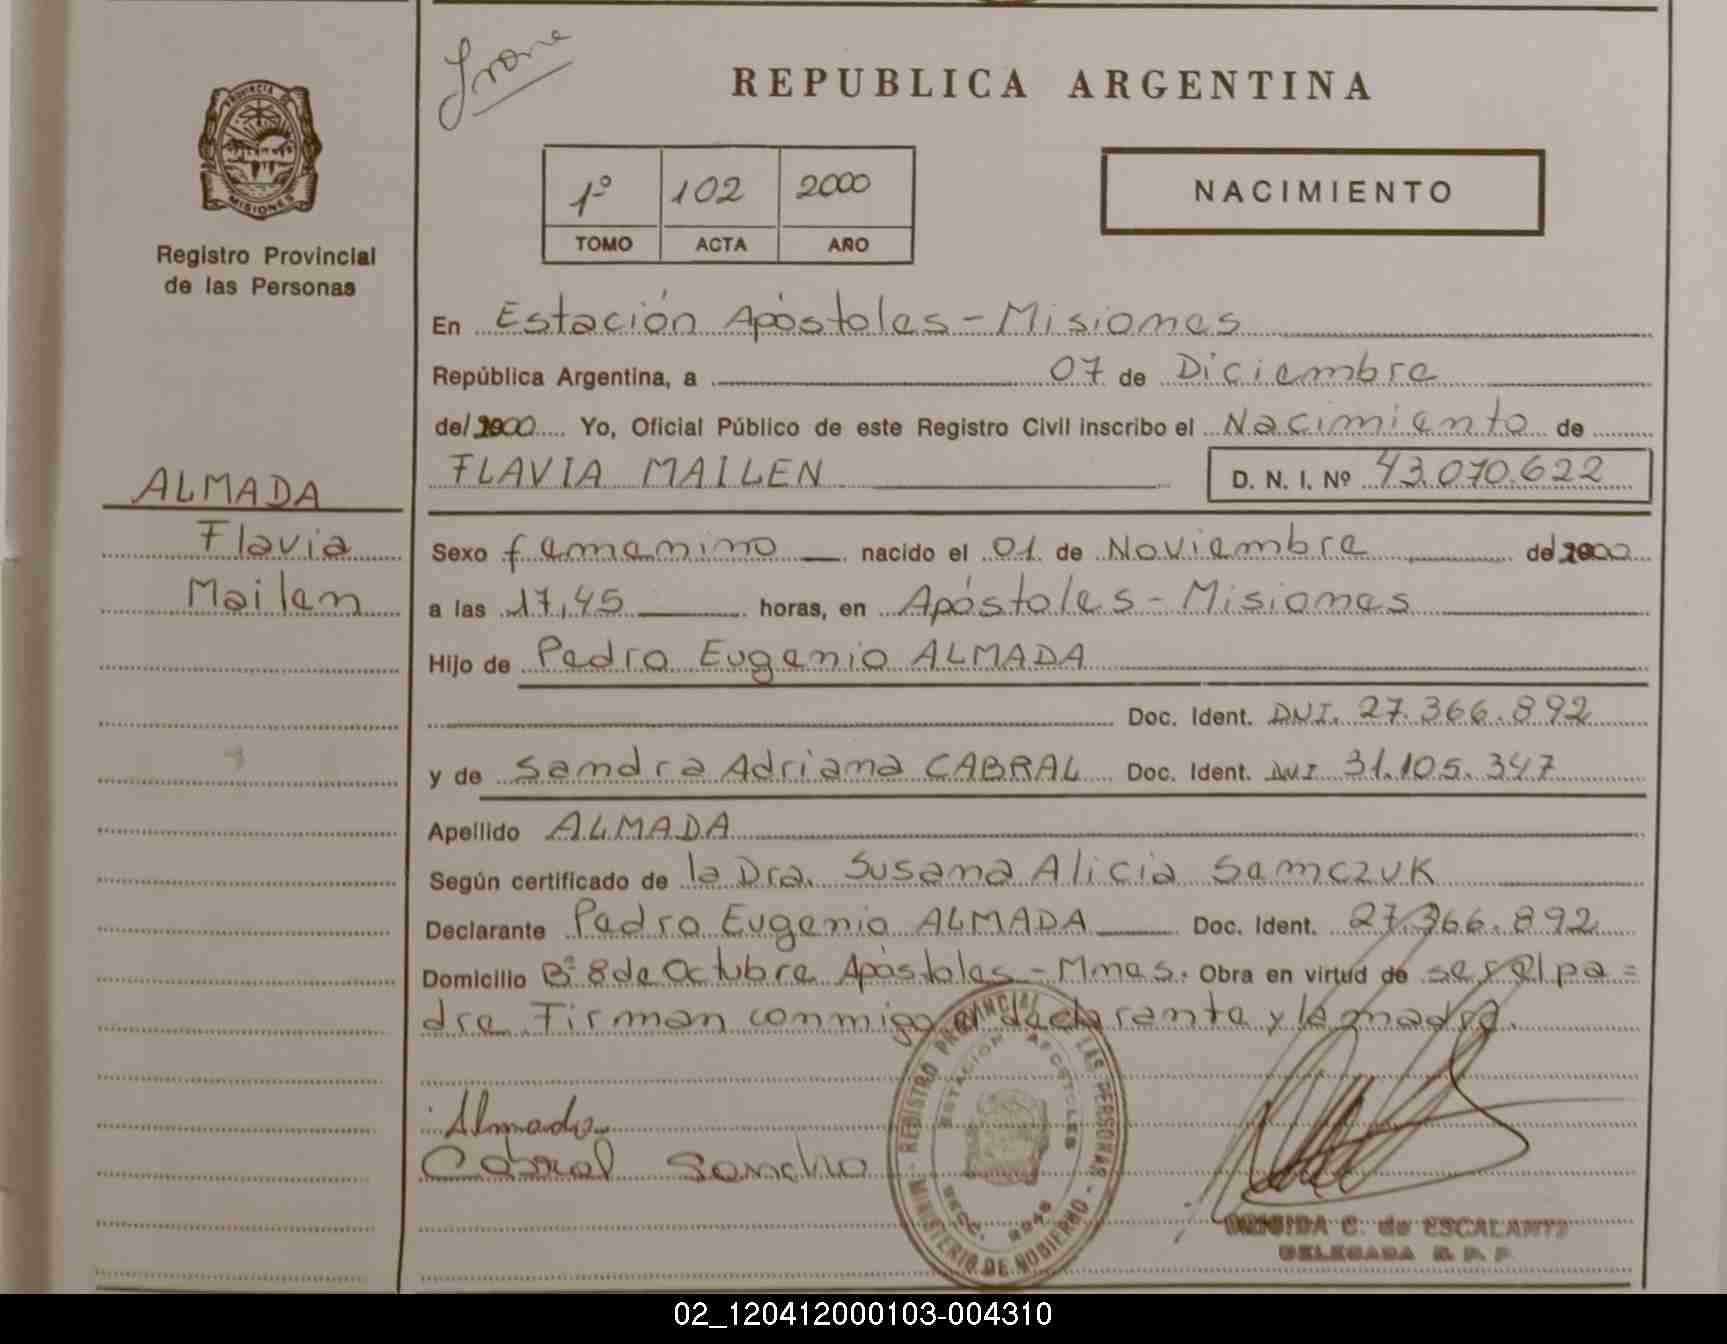 Irone
REPUBLICA ARGENTINA
PROVINCIA DE
MISIONES
1º 102 2000
TOMO ACTA AÑO
NACIMIENTO
Registro Provincial
de las Personas
En Estación Apóstoles - Misiones
República Argentina, a 07 de Diciembre
de/ 2000 Yo, Oficial Público de este Registro Civil inscribo el Nacimiento de
FLAVIA MAILEN D. N. I. Nº 43.070.622
ALMADA
Flavia
Mailen
Sexo femenino nacido el 01 de Noviembre de 2000
a las 17,45 horas, en Apóstoles - Misiones
Hijo de Pedro Eugenio ALMADA
Doc. Ident. DNI. 27.366.892
y de Sandra Adriana CABRAL Doc. Ident. DNI 31.105.347
Apellido ALMADA
Según certificado de la Dra. Susana Alicia Samczuk
Declarante Pedro Eugenio ALMADA Doc. Ident. 27.366.892
Domicilio Bº 8 de Octubre Apóstoles - Mnes. Obra en virtud de ser el pa=
dre Firman conmigo el declarante y la madre.
Almada
Cabral Sandra
REGISTRO PROVINCIAL DE LAS PERSONAS - MINISTERIO DE GOBIERNO -
ESTACION APOSTOLES
C. de ESCALANTE
DELEGADA R. P. P.
02_120412000103-004310